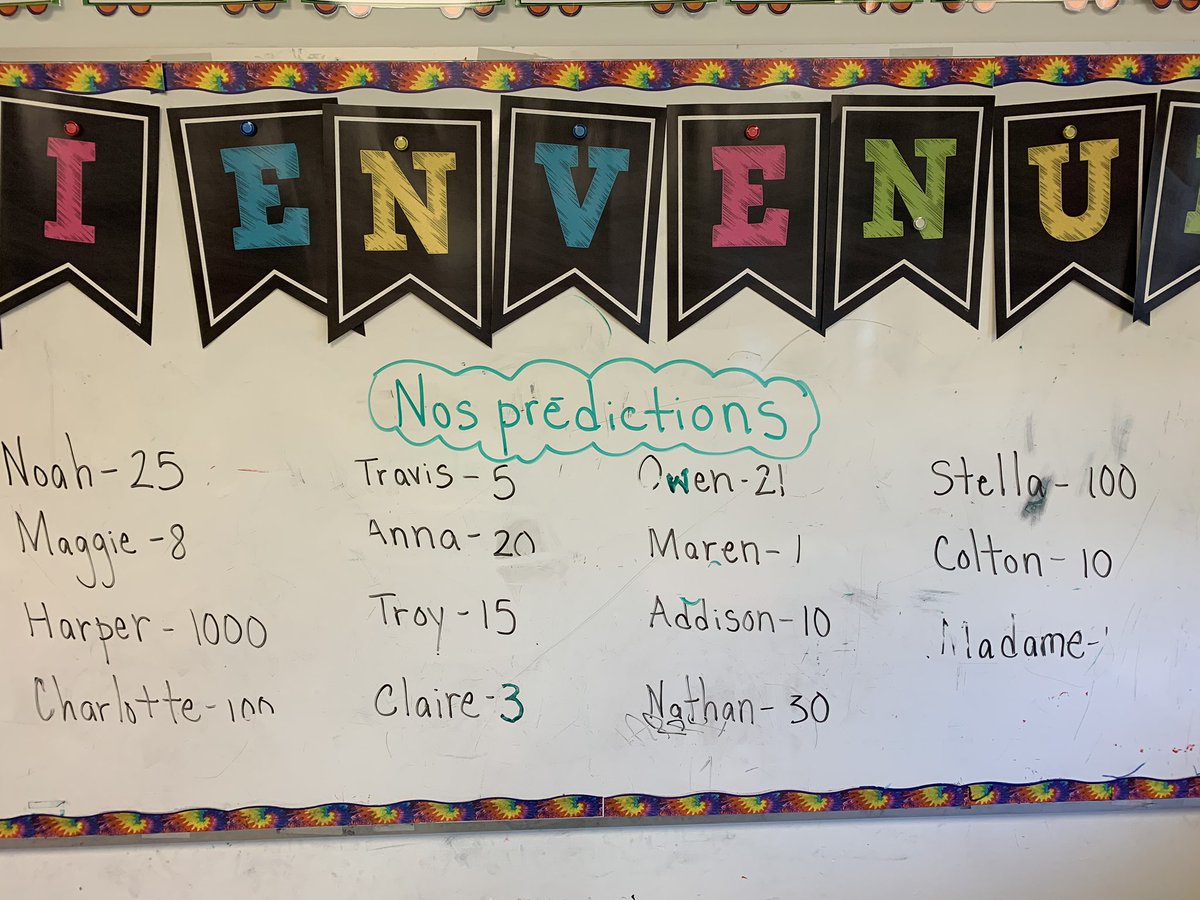 IENVENU
Nos prédictions
Noah - 25
Maggie - 8
Harper - 1000
Charlotte - 100
Travis - 5
Anna - 20
Troy - 15
Claire - 3
Owen - 21
Maren - 1
Addison - 10
Nathan - 30
Stella - 100
Colton - 10
Madame -